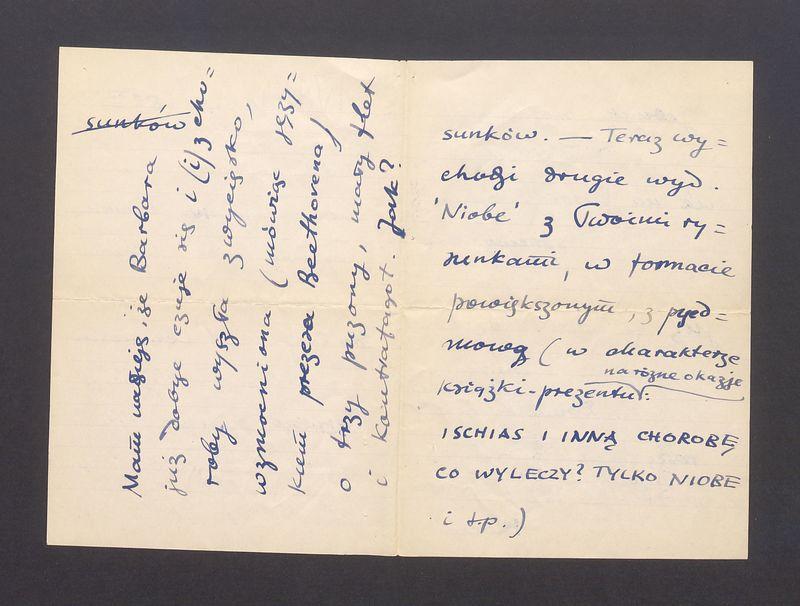 sunków. — Teraz wy=
chodzi drugie wyd.
'Niobe' z Twoimi ry=
sunkami, w formacie
powiększonym, z pzed=
mową (w charakterze
na różne okazje
książki-prezentu:
ISCHIAS I INNĄ CHOROBĘ
CO WYLECZY? TYLKO NIOBE
i t.p.)
sunków
Mam nadzieję, że Barbara
już dobrze czuje się i (i/z cho=
roby wyszła zwycięsko,
wzmocniona (mówiąc języ=
kiem prezesa Beethovena)
o trzy puzony, mały flet
i kontrafagot. Jak?